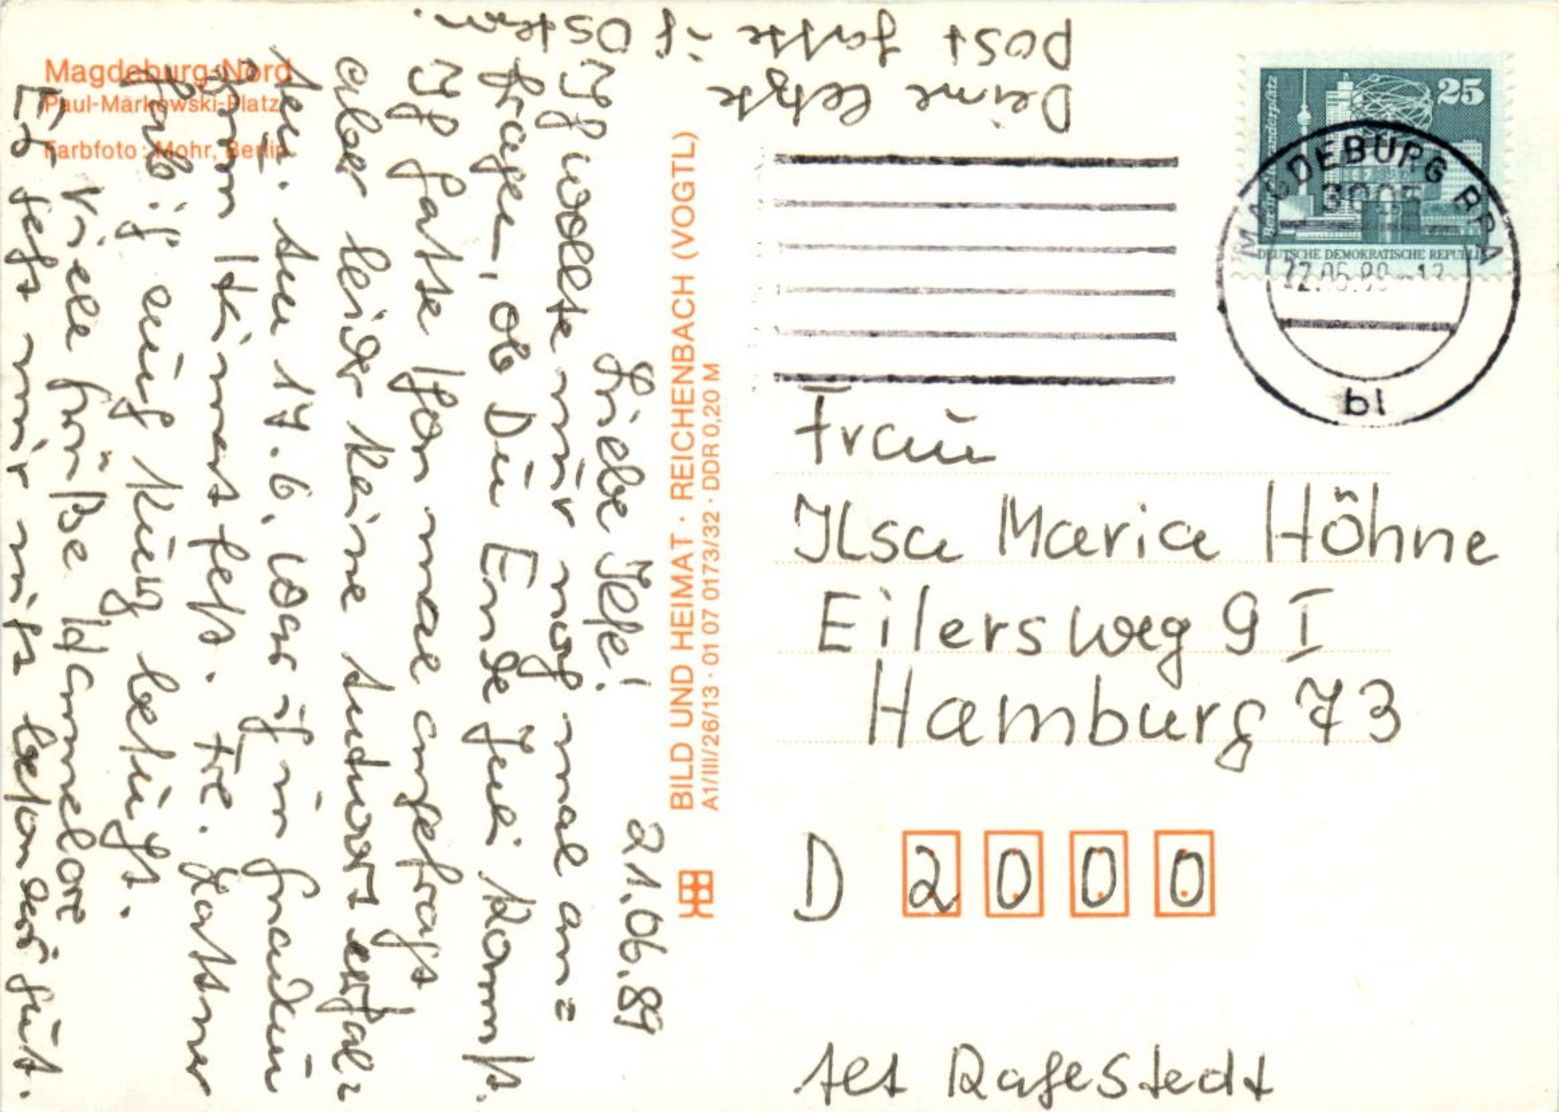 Magdeburg-Nord
Paul-Markowski-Platz
Farbfoto: Mohr, Berlin
21.06.89
Liebe Ilse!
Ich wollte nur noch mal an=
fragen, ob Du Ende Juli kommst.
Ich hatte schon mal angefragt
aber leider keine Antwort erhal=
ten. Am 17.6. war ich in
zum Fr.
hab ich auch kurz
Viele Grüße Hannelore
Es geht mir nicht besonders gut.
Deine letzte
Post hatte ich
Ostern.
BILD UND HEIMAT · REICHENBACH (VOGTL)
A1/III/26/13 · 01 07 0173/32 · DDR 0,20 M
25
DEUTSCHE DEMOKRATISCHE REPUBLIK
MAGDEBURG BPA
3005
22.06.89-12
bl
Frau
Ilse Maria Höhne
Eilersweg 9 I
Hamburg 73
D 2000
Rahlstedt